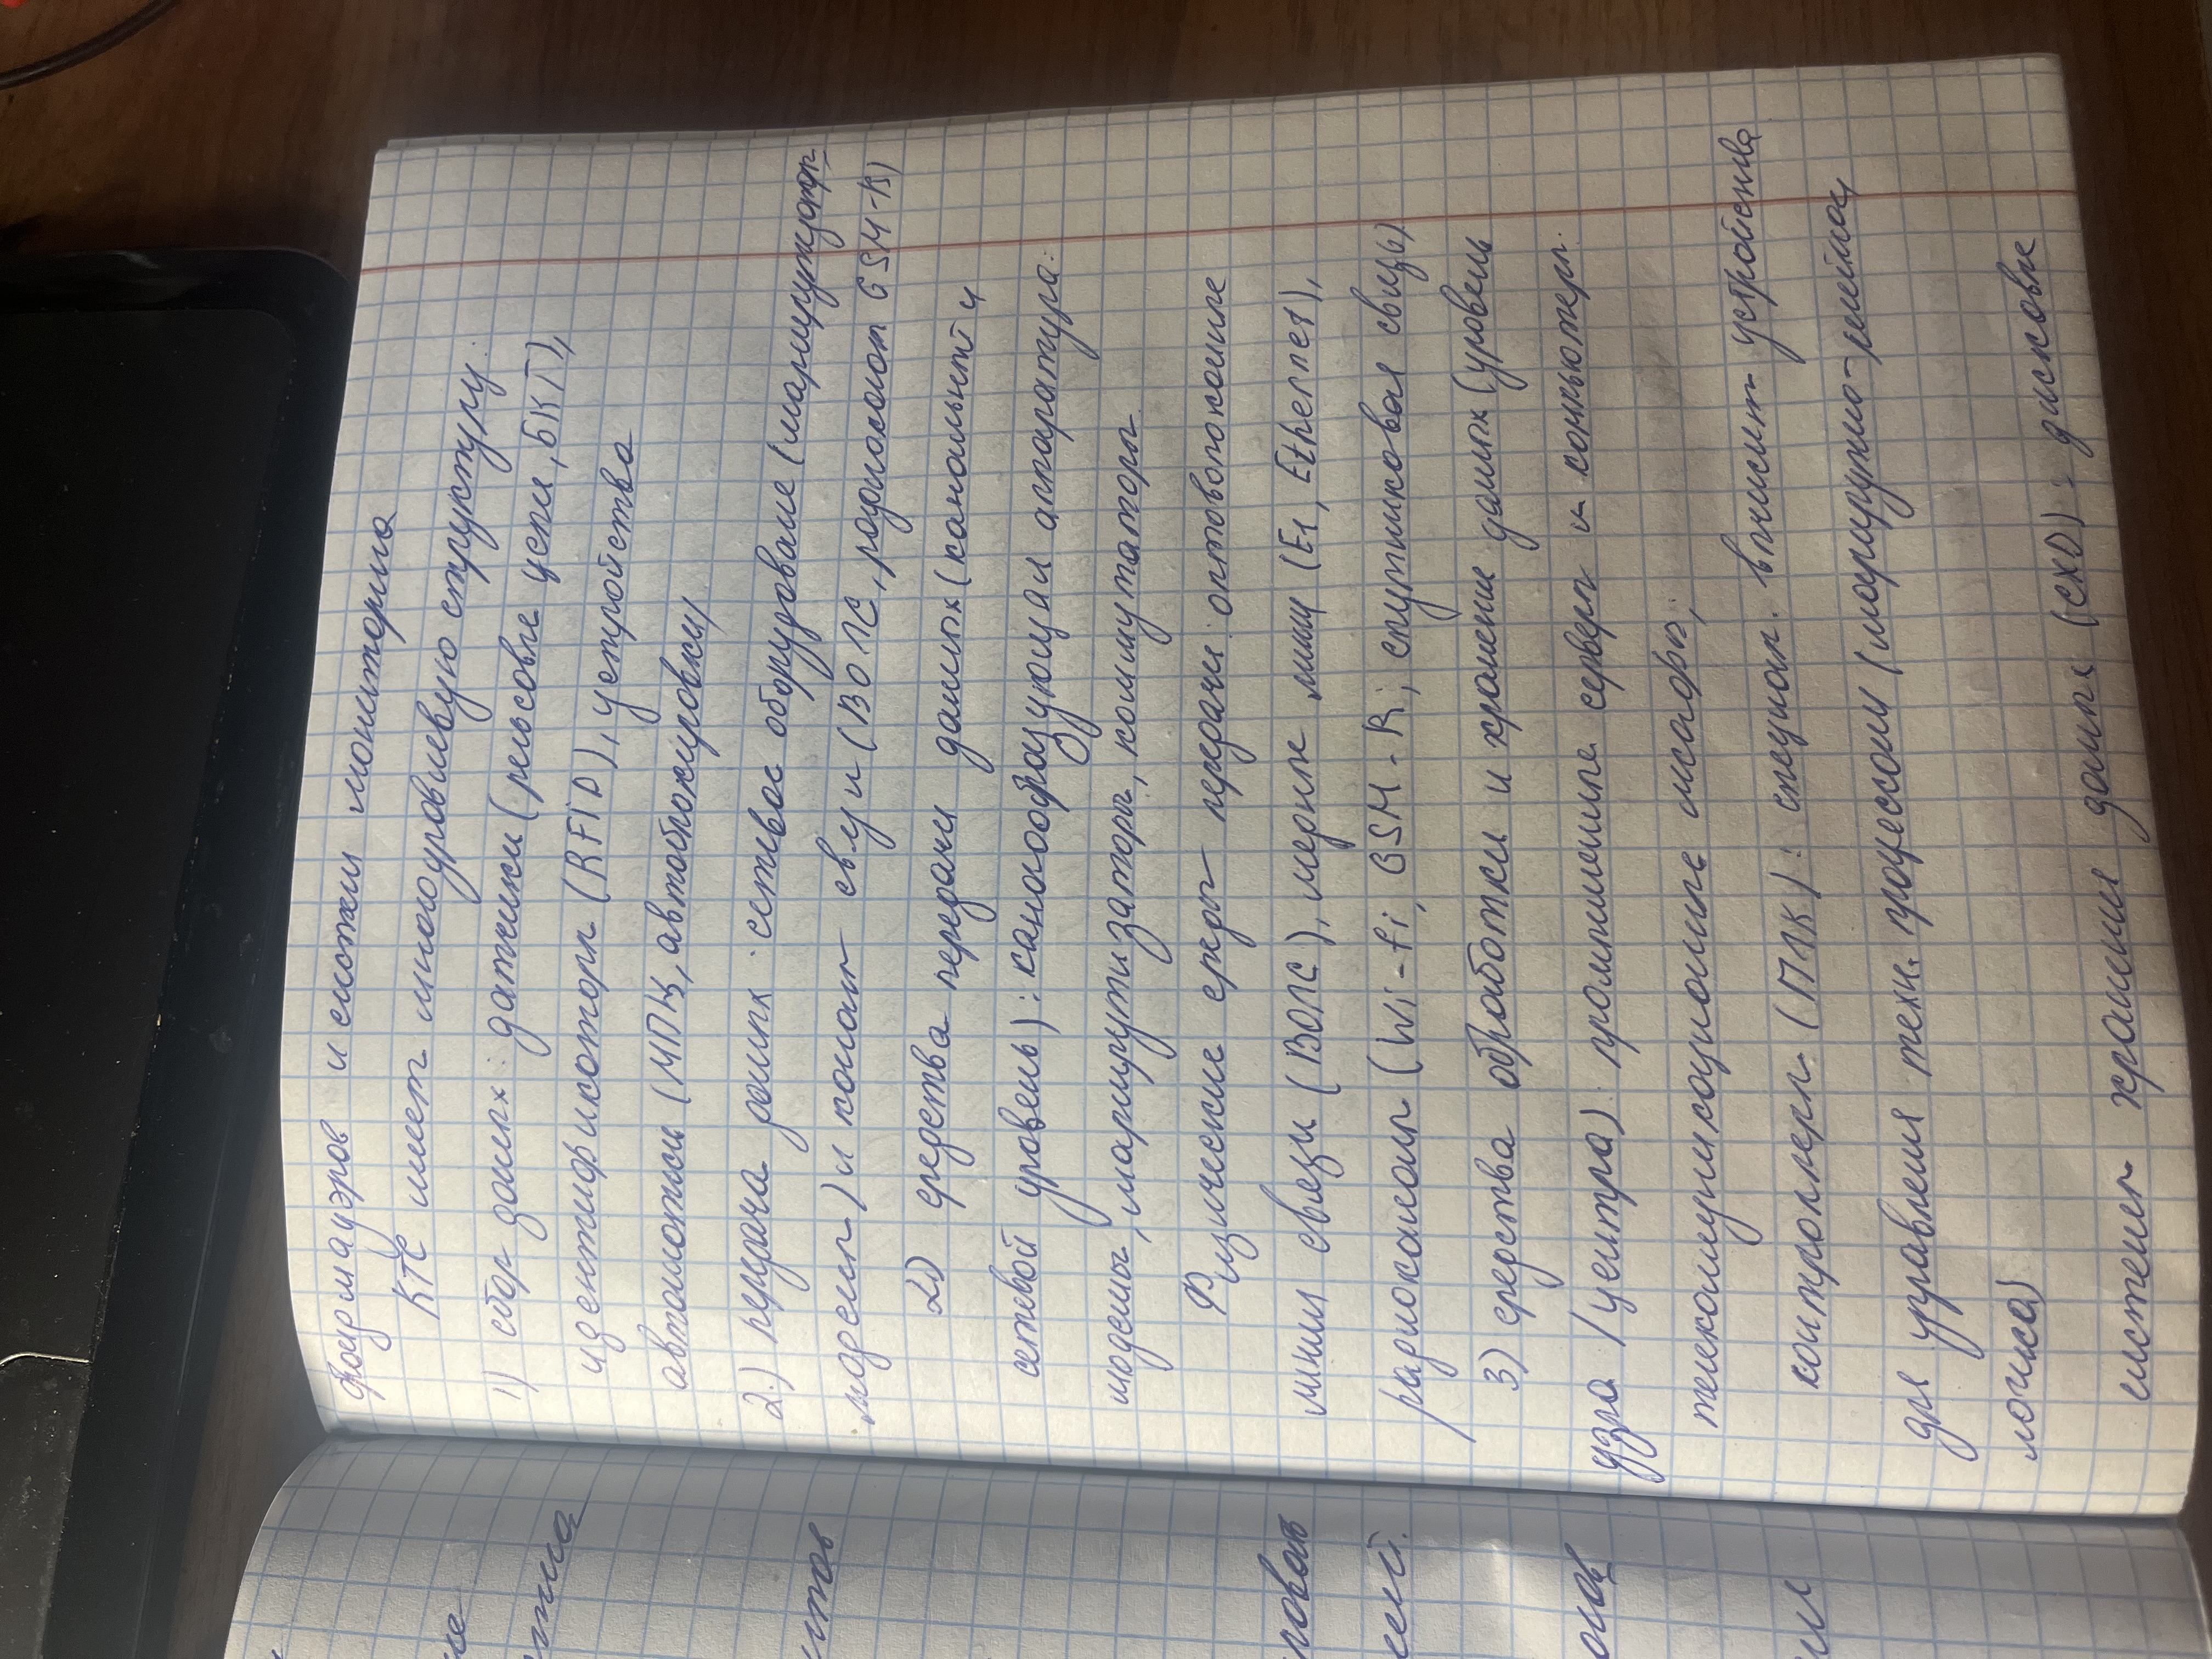 фаирмауэров и систем мониторинга
КТС имеет многоуровневую структуру:
1) сбор даных: датчики (рельсовые цепи, БКТ),
идентификаторы (RFiD), устройства
автоматики (МПЦ, автоблокировки)
2.) передача даных: сетевое оборудование (маршрутизаторы,
модемы) и каналы связи (ВОЛС, радиоканалы GSM-R)
2) средства передачи данных (канальный и
сетевой уровень): каналообразующая аппаратура:
модемы, маршрутизаторы, коммутаторы
Физические среды передачи: оптоволоконные
линии связи (ВОЛС), медные линии (E1, Ethernet),
радиоканалы (Wi-fi, GSM-R; спутниковая связь)
3) средства обработки и хранение даных (уровень
узла / центра) промышленые серверы и компьютеры.
телекоммуникационые шкафы;
контроллеры (ПЛК): специал. вычислит устройства
для управления техн. процессом (маршрутно-
логика)
системы хранения даных (СХД): дисковые
ов
ми